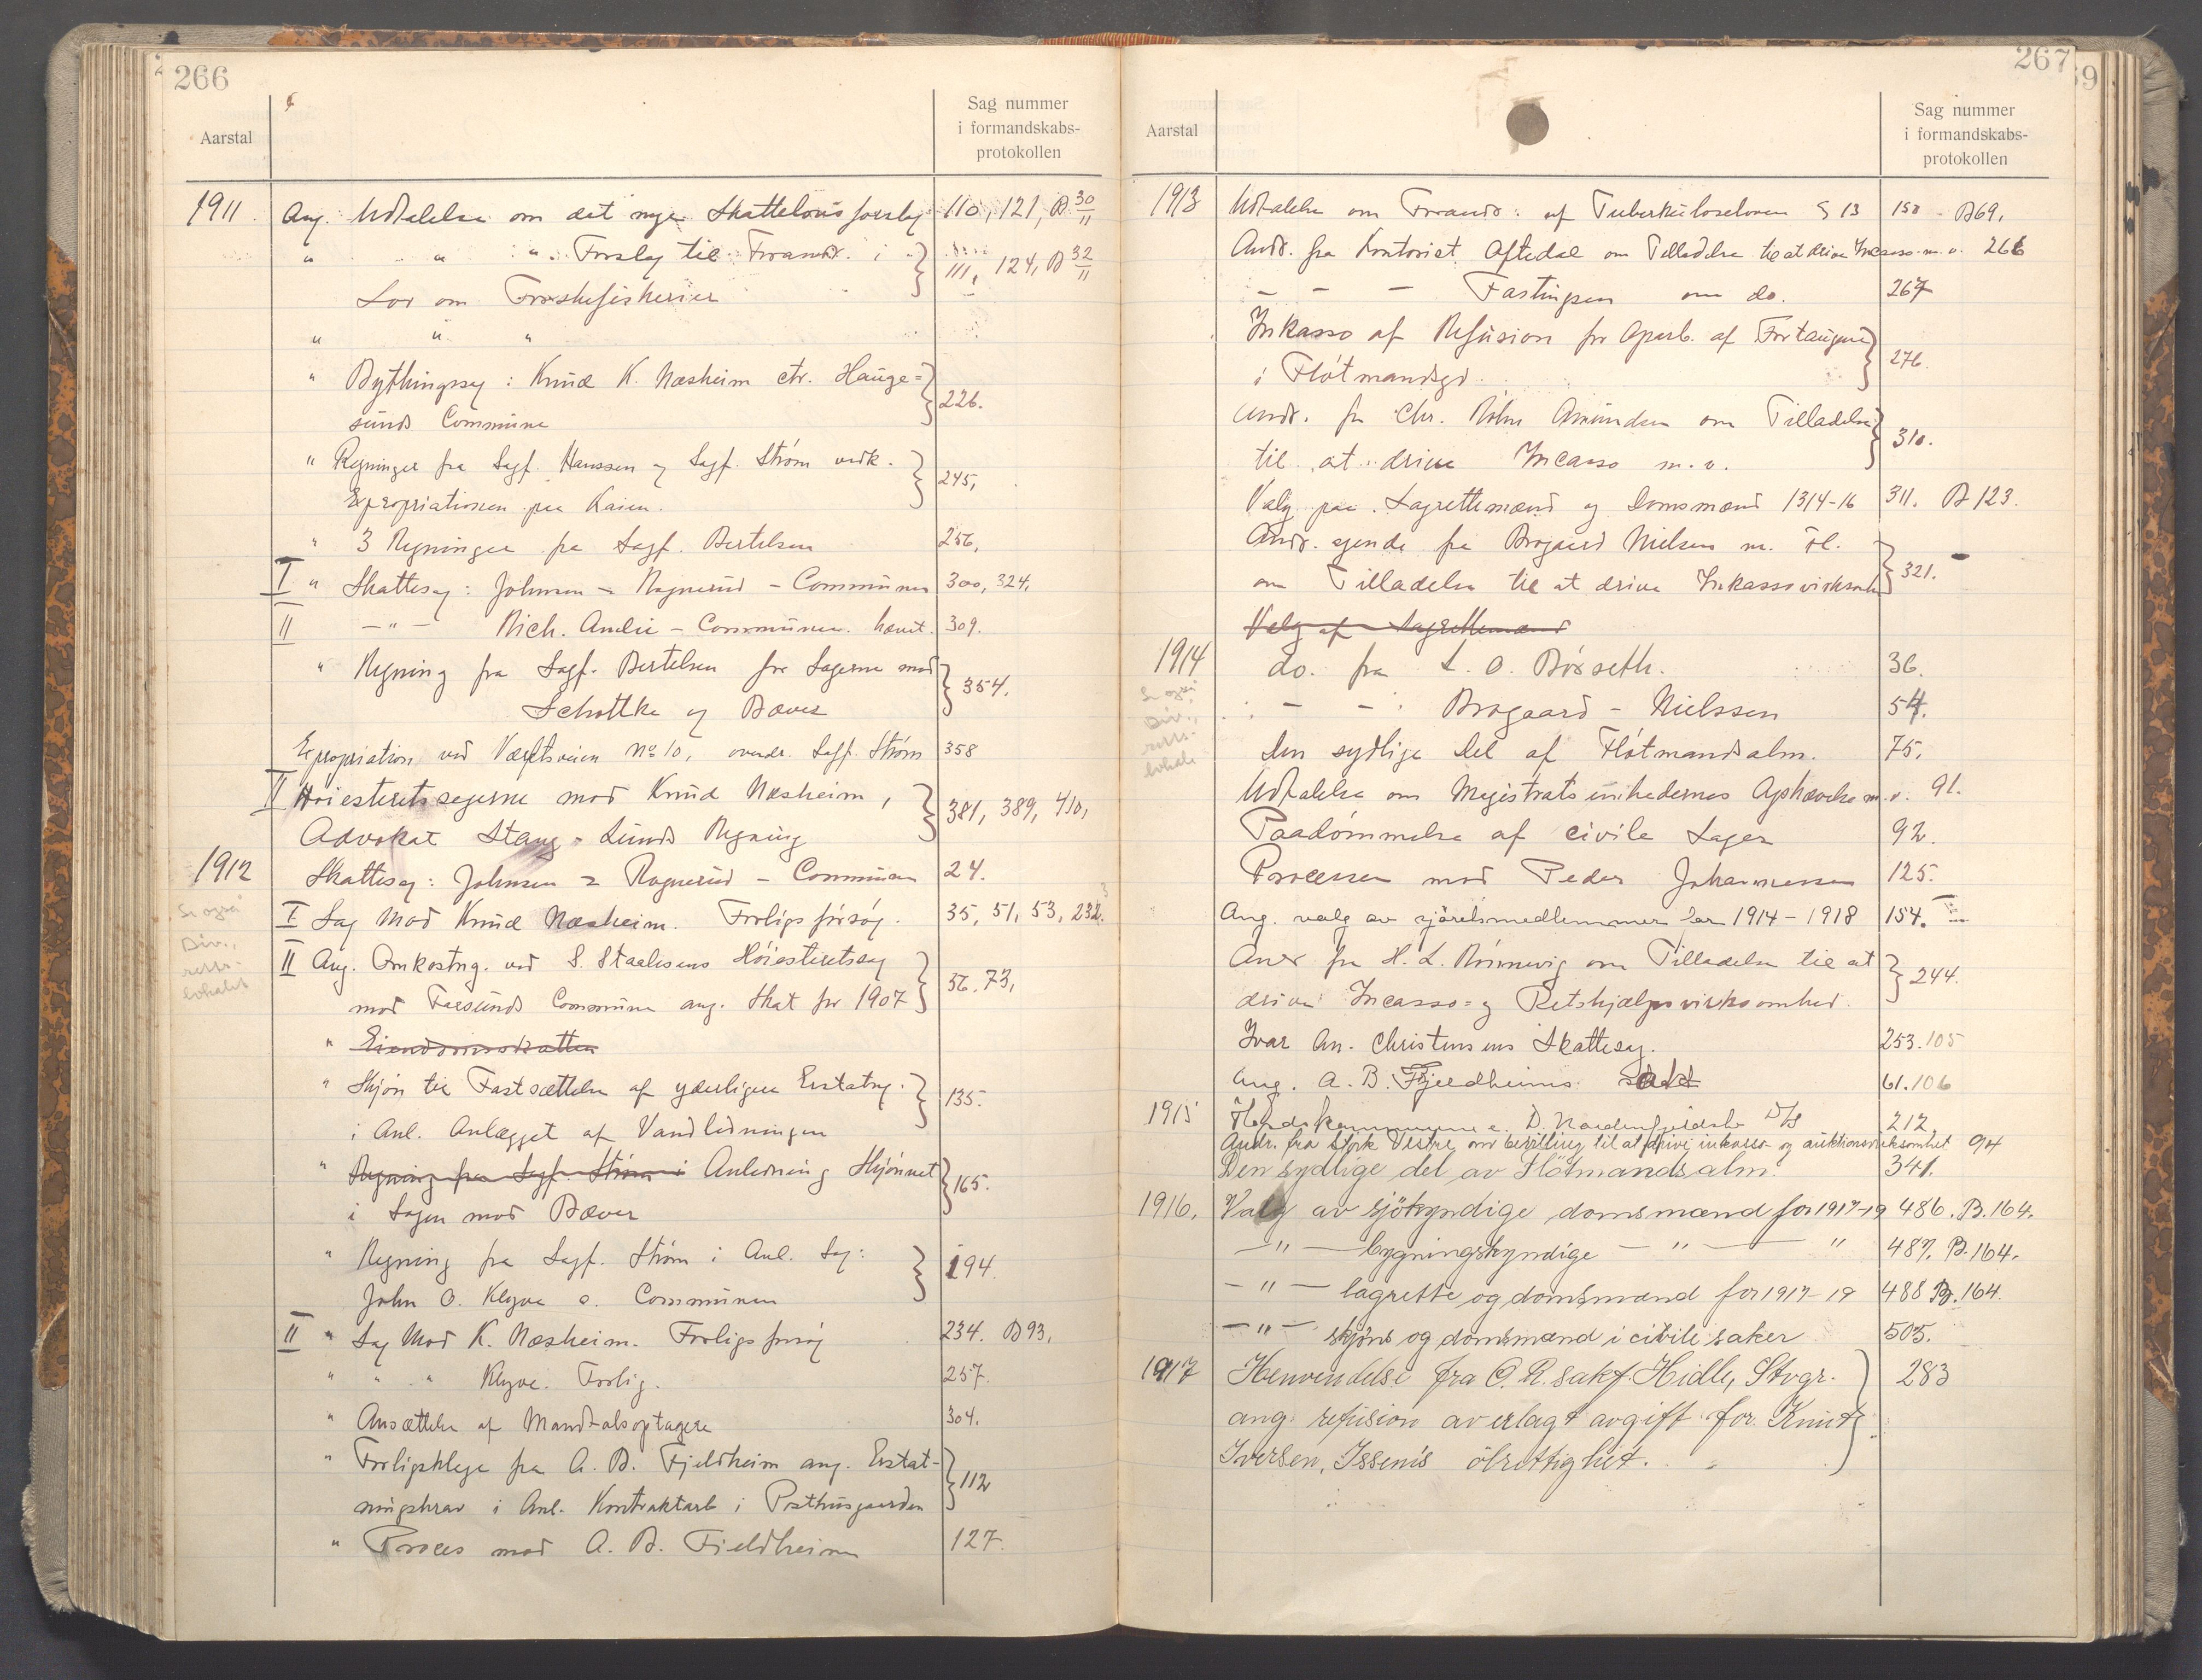 266
Aarstal
Sag nummer
i formandskabs-
protokollen
1911. Ang. Udtalelse om det nye Skattelovsforslag 110, 121, B 30/11
" " " Forslag til Forandr. i } 111, 124, B 32/11
Lov om Torskefiskerier
" " "
" Bythingssag: Knud K. Næsheim ctr. Hauge= } 226.
sunds Commune
" Regninger fra Sagf. Hanssen og Sagf. Strøm vedk. } 245,
Expropriationen paa Kaien.
" 3 Regninger fra Sagf. Bertelsen 256,
I " Skattesag: Johnsen & Ragnerud - Communen 300, 324,
II - " - Rich. Amlie - Communen. hævet. 309.
" Regning fra Sagf. Bertelsen for Sagerne mod } 354.
Schottke og Bæver
Expropriation ved Værftsveien No 10, Sagf. Strøm 358
II Høiesteretssagerne mod Knud Næsheim, } 381, 389, 410,
Advokat Stang=Lunds Regning
1912 Skattesag: Johnsen & Ragnerud - Communen 24.
Se også
Div.,
retts-
lokale
I Sag mod Knud Næsheim. Forligsforsøg. 35, 51, 53, 232.
II Ang. Omkostng. ved S. Staalesens Høiesteretssag } 56. 73,
mod Farsunds Commune ang. Skat for 1907
" Eiendomsskatten
" Skjøn til Fastsættelse af yderligere Erstatng. } 135.
i Anl. Anlægget af Vandledningen
" Regning fra Sagf. Strøm i Anledning Skjønnet } 165.
i Sagen mod Bæver
" Regning fra Sagf. Strøm i Anl. Sag: } 194.
John O. Klyve c. Communen
II " Sag mod K. Næsheim. Forligsforsøg 234. B 93,
" " " Klyve. Forlig. 257.
" Ansættelse af Mandtalsoptagere 304.
" Forligsklage fra A. B. Fjeldheim ang. Erstat- } 112
ningskrav i Anl. Kontraktarb. i Posthusgaarden
" Proces mod A. B. Fjeldheim 127.
267
Aarstal
Sag nummer
i formandskabs-
protokollen
1913 Udtalelse om Forandr. af Tuberkuloseloven § 13 150 - B69,
Andr. fra Kontorist Aftedal om Tilladelse til at drive Incasso m. v. 266
- - - Fastingsen om do. 267
Inkasso af Refusion for Oparb. af Fortaugene } 276.
i Fløtmandsgd.
Andr. fra Chr. Holm Amundsen om Tilladelse } 310.
til at drive Incasso m. v.
Valg paa Lagrettemænd og Domsmænd 1914-16 311. B 123.
Andr. fra Brogaard Nielsen m. fl. } 321.
om Tilladelse til at drive Inkassovirksomhed
Valg af Lagrettemænd
1914 do. fra L. O. Røsseth. 36.
Se også
Div.,
retts-
lokale
- - Brogaard - Nielssen 54.
Den sydlige Del af Fløtmandsalm. 75.
Udtalelse om Magistratsenhedernes Ophævelse m. v. 91.
Paadømmelse af civile Sager 92.
Processen mod Peder Johannessen 125.
Ang. valg av sjøretsmedlemmer for 1914 - 1918 154.
Andr fra H. L. Rønnevig om Tilladelse til at } 244.
drive Incasso= og Retshjælpsvirksomhed.
Ivar An. Christensens Skattesag. 253. 105
Ang. A. B. Fjeldheims 61. 106
1915 c. D. Nordenfjeldske D/S 212.
Andr. fra Størk Vestre om bevilling til at drive inkasso- og auktionsvirksomhet 94
Den sydlige del av Fløtmandsalm. 341.
1916. Valg av sjøkyndige domsmænd for 1917-19 486. B. 164.
- " - bygningskyndige - " - " 487. B. 164.
- " - lagrette og domsmænd for 1917-19 488 B. 164.
- " - skjøns og domsmænd i civile saker 505.
1917 Henvendelse fra O. R. sakf. Hidle, Stvgr. } 283
ang. refusion av erlagt avgift for Knut
Iversen, Issens ølrettighet.